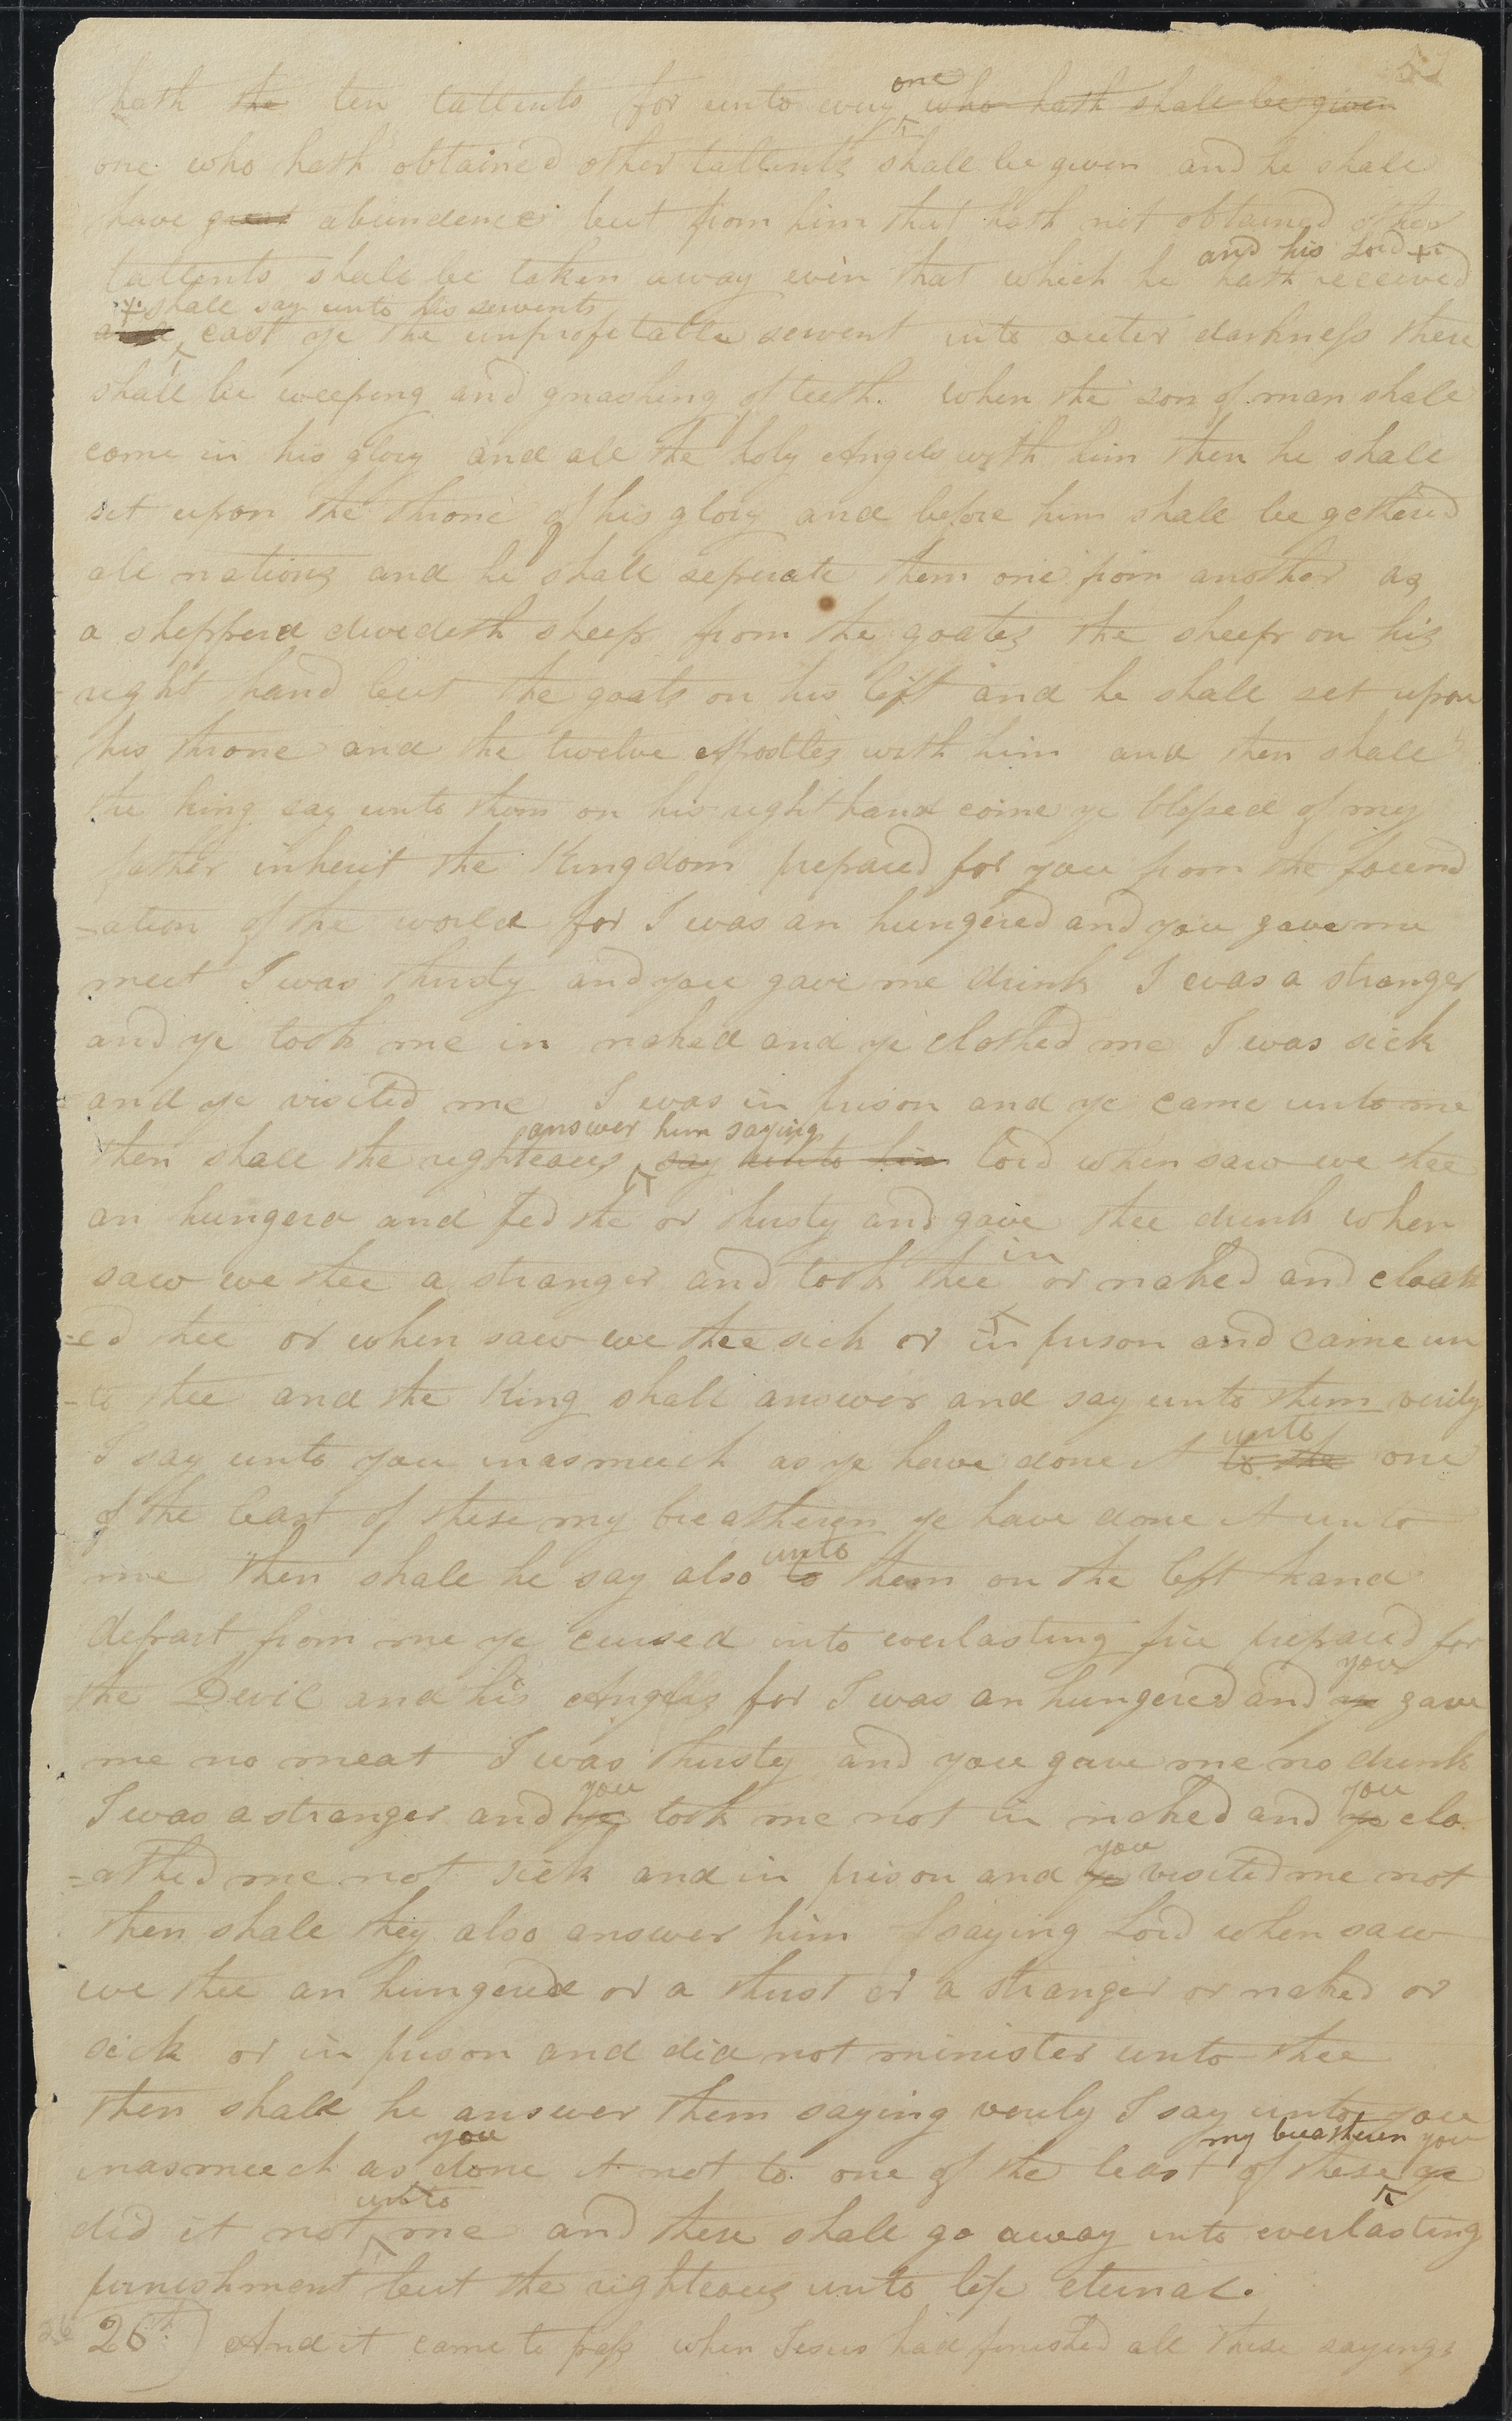 hath the ten tallents for unto every one who hath shall be given
one who hath obtained other tallents shall be given and he shall
have great abundence but from him that hath not obtained other
tallents shall be taken away even that which he hath received
and his Lord +
+ shall say unto his servents
cast ye the unprofitable servent into outer darkness there
shall be weeping and gnashing of teeth. when the son of man shall
come in his glory and all the holy Angels with him then he shall
set upon the throne of his glory and before him shall be gethered
all nations and he shall seperate them one from another as
a shepperd devedeth sheep from the goates the sheep on his
right hand but the goats on his left and he shall set upon
his throne and the twelve Apostles with him and then shall
the king say unto them on his right hand come ye blessed of my
father inherit the Kingdom prepared for you from the found
-ation of the world for I was an hungered and you gave me
meet I was thirsty and you gave me drink I was a stranger
and ye took me in naked and ye clothed me I was sick
and ye visited me I was in prison and ye came unto me
answer him saying
then shall the righteous say unto him lord when saw we thee
an hungerd and fed the or thirsty and gave thee drink when
saw we thee a stranger and took thee in or naked and cloath
-ed thee or when saw we thee sick or in prison and came un
-to thee and the King shall answer and say unto them verily
unto
I say unto you inasmuch as ye have done it to the one
of the least of these my breatheren ye have done it unto
unto
me then shall he say also to them on the left hand
depart from me ye cursed into everlasting fire prepared for
you
the Devil and his Angels for I was an hungered and ye gave
me no meat I was thirsty and you gave me no drink
you you
I was a stranger and ye took me not in naked and ye clo
you
-athed me not sick and in prison and ye visited me not
then shall they also answer him saying Lord when saw
we thee an hungered or a thirst or a stranger or naked or
sick or in prison and did not minister unto thee
then shall he answer them saying verily I say unto you
you my breatheren you
inasmuch as done it not to one of the least of these ye
unto
did it not me and these shall go away into everlasting
punishment but the righteous unto life eternal.
26 26th) And it came to pass when Jesus had finished all these sayings